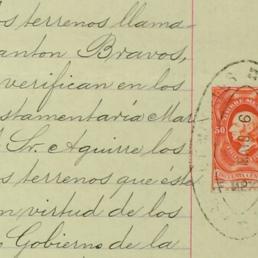 os terrenos llama-
anton Bravos,
verifican en los
stamentaría Mar
Sr. Aguirre los
os terrenos que éste
n virtud de los
Gobierno de la
50